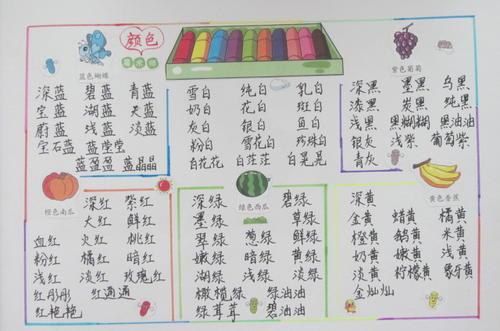 颜色
蓝色蝴蝶
深蓝 碧蓝 青蓝
宝蓝 湖蓝 天蓝
蔚蓝 浅蓝 淡蓝
宝石蓝 蓝莹莹
蓝盈盈 蓝晶晶
雪白 纯白 乳白
奶白 花白 斑白
灰白 银白 鱼白
粉白 雪花白 珍珠白
白花花 白茫茫 白晃晃
紫色葡萄
深黑 墨黑 乌黑
漆黑 炭黑 纯黑
浅黑 黑糊糊 黑油油
银灰 浅紫 葡萄紫
青灰
橙色南瓜
深红 紫红
大红 鲜红
血红 火红 桃红
粉红 橘红 暗红
浅红 淡红 玫瑰红
红彤彤 红通通
红艳艳
绿色西瓜
深绿 碧绿
墨绿 草绿
翠绿 葱绿 鲜绿
嫩绿 暗绿 黄绿
湖绿 浅绿 淡绿
橄榄绿 绿油油
绿茸茸 碧油油
黄色香蕉
深黄
金黄 蜡黄 橘黄
橙黄 鹅黄 米黄
奶黄 嫩黄 浅黄
淡黄 柠檬黄 象牙黄
金灿灿